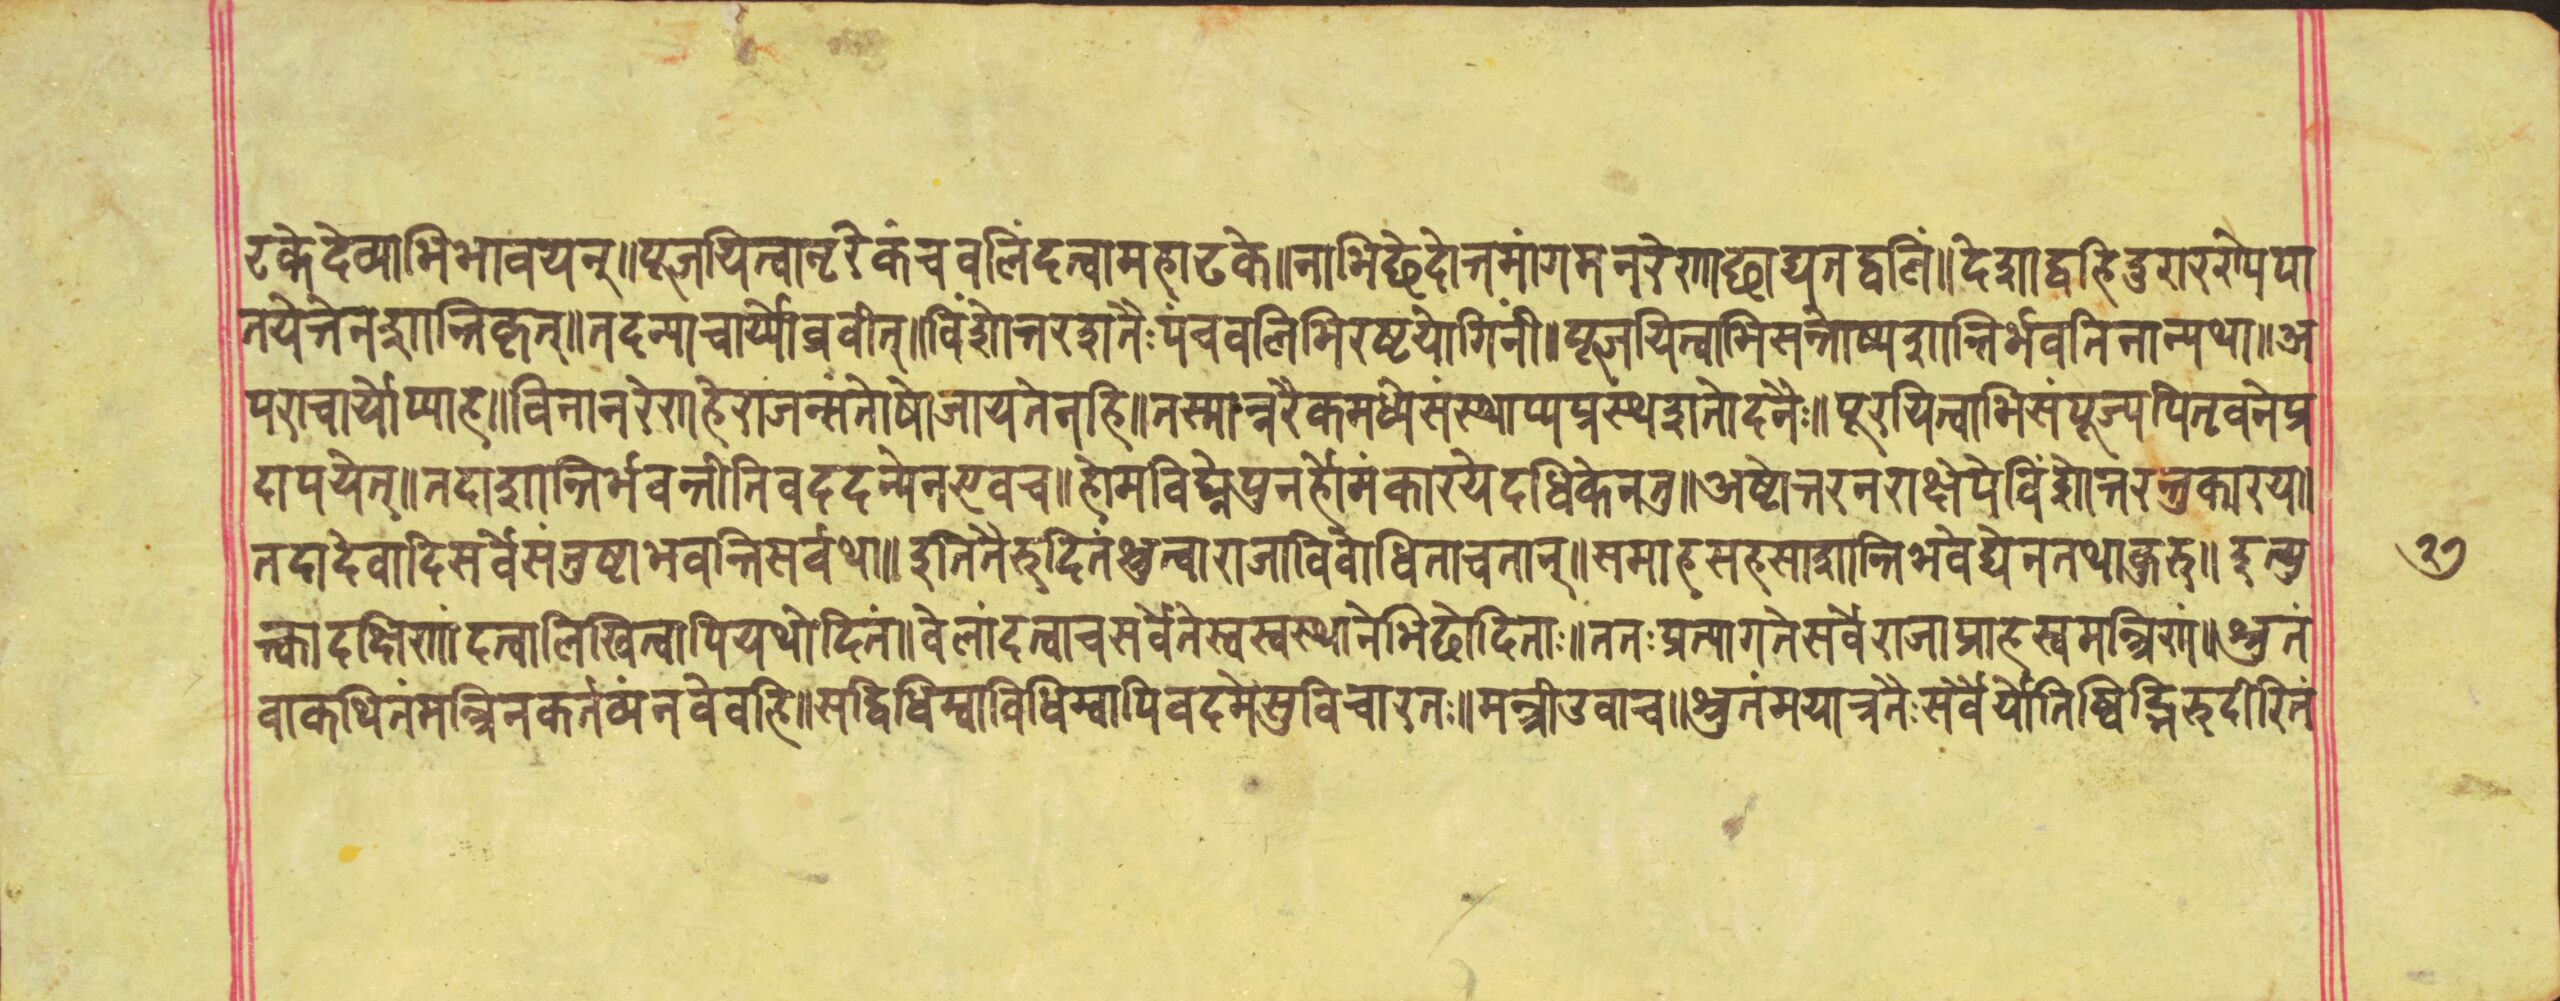 टकेदेव्याभिभावयेत्॥पूजयित्वानृरेकंचबलिंदत्वामहाटके॥नाभिछेदोत्तमांगमनरेणाछाद्यतद्बलिं॥देशाद्वहिदुरारोपपा
तयेत्तेनशान्तिकृत्॥तदन्याचार्य्योब्रवीत्॥विंशोत्तरशतैःपंचबलिभिरष्टयोगिनी॥पूजयित्वाभिसन्तोष्यशान्तिर्भवतिनान्यथा॥अ
पराचार्योप्याह॥विनानरेणहेराजन्संतोषोजायतेनहि॥तस्मान्नरैकमध्येसंस्थाप्यप्रस्थशतोदनैः॥पूरयित्वाभिसंपूज्यपितृवनेप्र
दापयेत्॥तदाशान्तिर्भवन्तीतिवददन्येनएवच॥होमविघ्नेपुनर्होमंकारयेदधिकेनतु॥अष्टोत्तरनराक्षेपेविंशोत्तरन्तुकारय॥
तदादेवादिसर्वेसंतुष्टाभवन्तिसर्वथा॥इतितैरुदितंश्रुत्वाराजाविबोधिताचतान्॥समाहसहसाशान्तिभवेद्येनतथाकुरु॥इत्यु
क्त्वादक्षिणांदत्वालिखित्वापियथोदितं॥वेलांदत्वाचसर्वेतेस्वस्वस्थानेभिछोदिताः॥ततःप्रत्यागतेसर्वेराजाप्राहस्वमन्त्रिणं॥श्रुतं
वाकथितंमन्त्रिनकर्तव्यंनवेवहि॥सद्विधिम्वाविधिम्वापिवदमेसुविचारतः॥मन्त्रीउवाच॥श्रुतंमयात्रतैःसर्वैर्योतिष्विद्भिरुदीरितं
३७